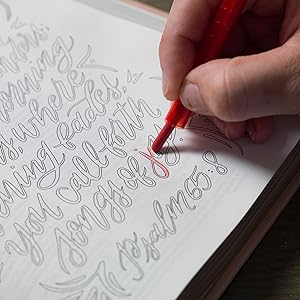 nders;
morning
s, where
ening fades,
you call forth
songs of joy.
Psalm 65:8